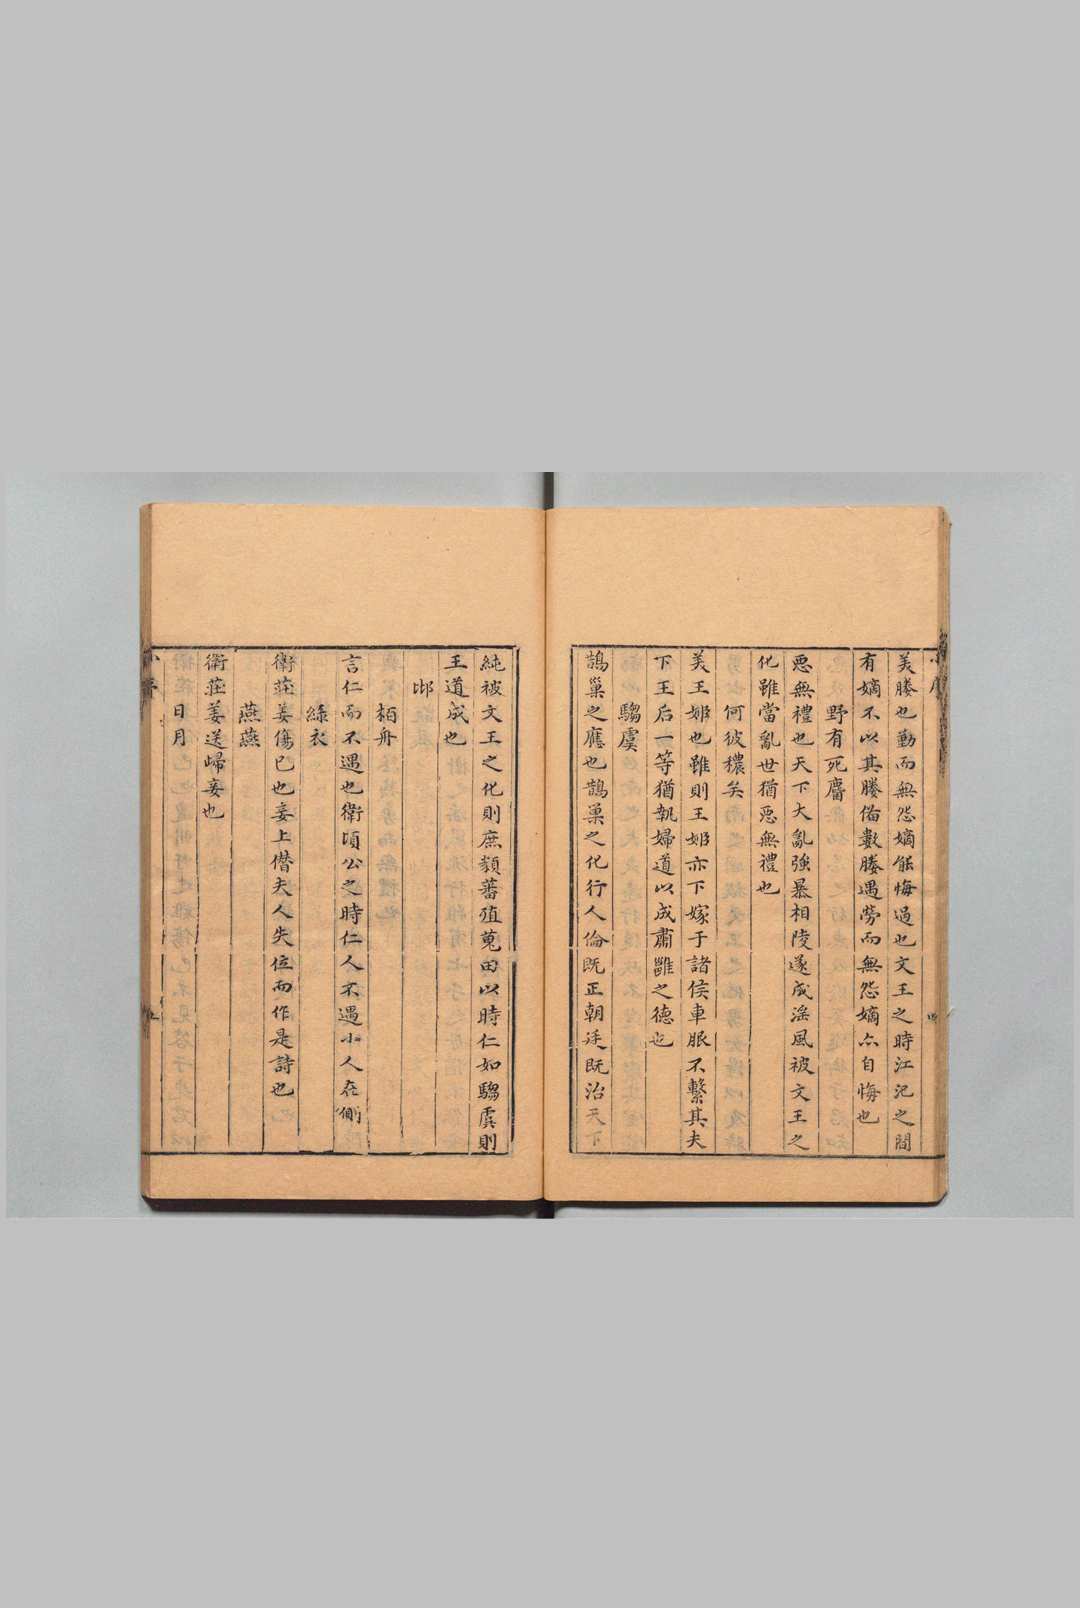 美媵也勤而無怨嫡能悔過也文王之時江沱之間
有嫡不以其媵俻數媵遇勞而無怨嫡亦自悔也
野有死麕
惡無禮也天下大亂強暴相陵遂成滛風被文王之
化雖當亂世猶惡無禮也
何彼穠矣
美王姬也雖則王姬亦下嫁于諸侯車服不繫其夫
下王后一等猶執婦道以成肅雝之德也
騶虞
鵲巢之應也鵲巢之化行人倫既正朝廷既治天下
純被文王之化則庶類蕃殖蒐田以時仁如騶虞則
王道成也
邶
柏舟
言仁而不遇也衛頃公之時仁人不遇小人在側
綠衣
衛莊姜傷已也妾上僭夫人失位而作是詩也
燕燕
衛莊姜送歸妾也
日月